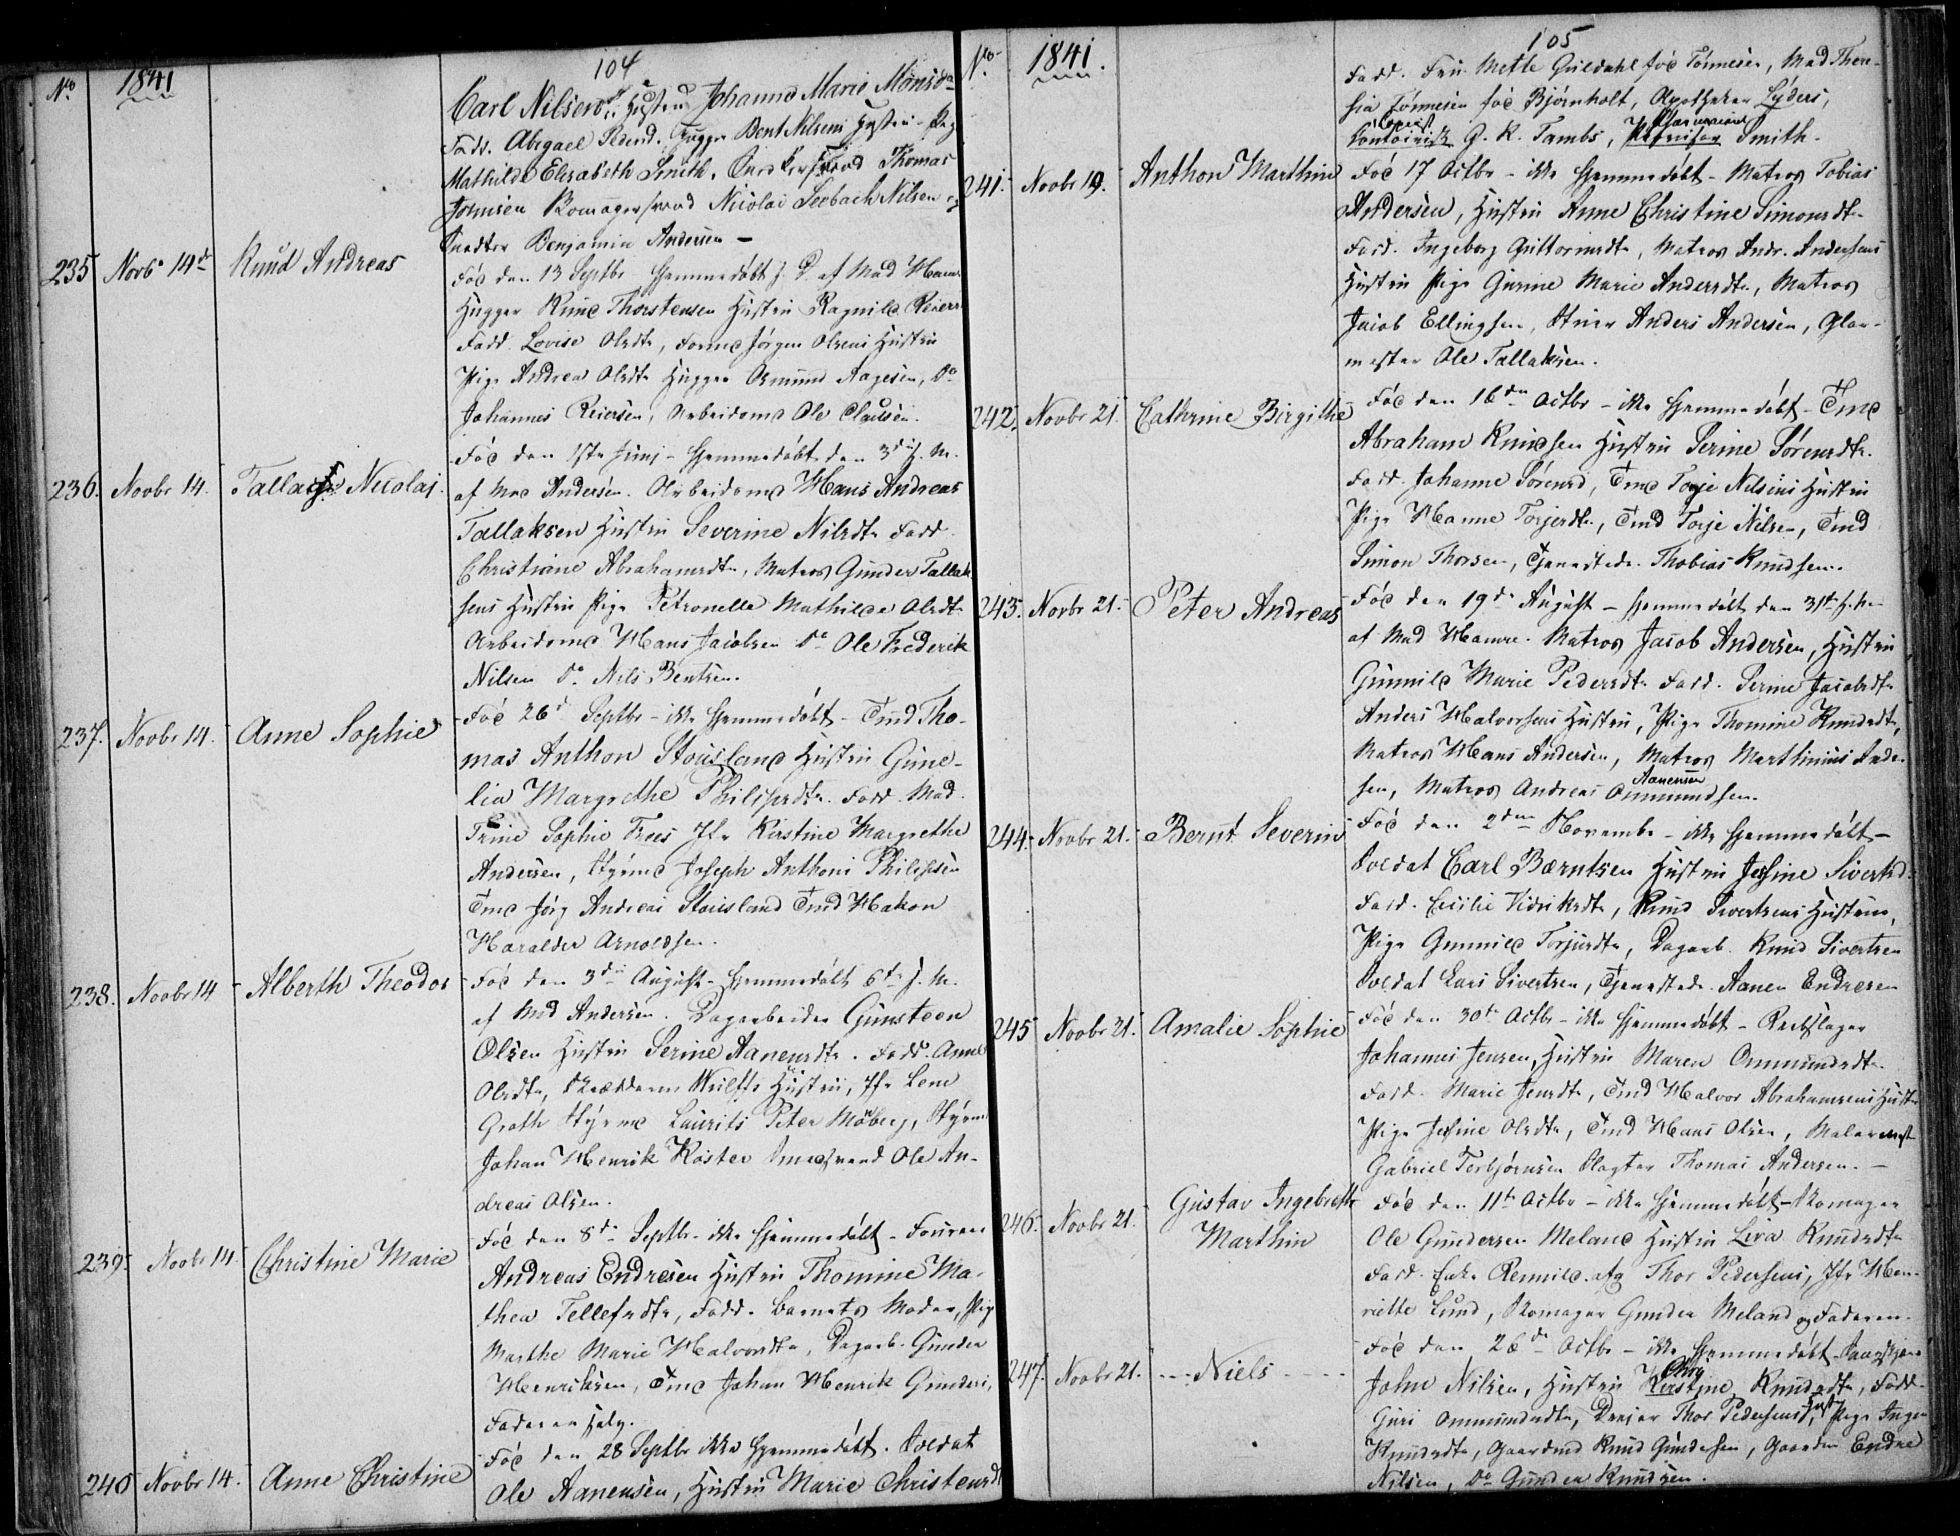 No 1841 104
Carl Nilsen Hustru Johanne Marie Mønsd
Fadd. Abigael Hugger Bent Nilsens Hustru Pig
Mathilde Elisabeth Smith, Thomas
Jonnsen Nicolai Seebach Nilsen og
Benjamin Andersen –
235 Novb 14d Knud Andreas
Fød den 13 Septbr hjemmedøbt s. D. af Mad
Hugger Knud Thorstensen Hustru Ragnild Reiers
Fadd. Lovise Olsdtr, Jørgen Olsens Hustru
Pige Andrea Olsdtr Hugger Osmund Aagesen, Do
Johannes Reiersen, Arbeidsmd Ole Clausen.
236. Novbr 14. Tallak Nicolai
Fød den 1ste Junj – hjemmedøbt den 3d s. M.
af Mad Andersen. Arbeidsmd Hans Andreas
Tallaksen Hustru Severine Nilsdtr Fadd.
Christiane Abrahamsdtr, Matros Gunder Tallak
sens Hustru Pige Petronelle Mathilde Olsdtr
Arbeidsmd Hans Jacobsen Do Ole Frederik
Nilsen Do Nils Bentsen.
237. Novbr 14. Anne Sophie
Fød 26d Septbr – ikke hjemmedøbt – Tmd Tho-
mas Anthon Stousland Hustru Gune-
lia Margrethe Philipsdtr. Fadd. Mad.
Trine Sophie Trees Jfr Kirstine Margrethe
Andersen, Styrmd Joseph Anthoni Philipsen
Tmd Jørg Andreas Stousland Tmd Hakon
Haralder Arnoldsen.
238. Novbr 14 Alberth Theodor
Fød den 3d August – hjemmedøbt 6te s. M.
af Mad Andersen. Dagarbeider Gunsteen
Olsen Hustru Serine Aanensdtr. Fadd. Anne
Olsdtr, Skrædderm Wulffs Hustru, Jfr Lene
Groth Styrmd Laurits Peter Møberg, Styrm
Johan Henrik Køster Ole An-
dreas Olsen.
239. Novbr 14. Christine Marie
Fød den 8de Septbr – ikke hjemmedøbt –
Andreas Endresen Hustru Thomine Ma-
thea Tellefsdtr, Fadd. barnets Moder, Pig
Marthe Marie Halvorsdtr, Dagarb. Gunder
Henriksen, Tmd Johan Henrik Gunders,
Faderen selv.
240 Novbr 14. Anne Christine
Fød den 28 Septbr ikke hjemmedøbt. Soldat
Ole Aanensen, Hustru Marie Christensdt
No 1841. 105
Fadd. Fru Mette Guldahl fød Tønnesen, Mad Then-
sia Tønnesen fød Bjørnholt, Apotheker Lyders,
G. K. Tambs, Smith.
241. Novbr 19. Anthon Marthin
Fød 17 Octbr – ikke hjemmedøbt – Matros Tobias
Andersen, Hustru Anne Christine Simonsdtr
Fadd. Ingeborg Guttormsdtr, Matros Andr. Andersens
Hustru Pige Gurine Marie Andersdtr, Matros
Jacob Ellingsen, Anders Andersen, Glar-
mester Ole Tallaksen.
242. Novbr 21. Cathrine Birgithe
Fød den 16den Octbr – ikke hjemmedøbt – Tmd
Abraham Knudsen Hustru Serine Sørensdtr.
Fadd. Johanne Sørensd, Tmd Torje Nilsens Hustru
Pige Hanne Torjesdtr, Tmd Torje Nilsen, Tmd
Simon Thorsen, Tjenestedr. Thobias Knudsen.
243. Novbr 21. Peter Andreas
Fød den 19de August – hjemmedøbt den 31te s. M.
af Mad Hamre. Matros Jacob Andersen, Hustru
Gunnild Marie Pedersdtr. Fadd. Serine Jacobsdtr
Anders Halvorsens Hustru, Pige Thomine Knudsdtr,
Matros Hans Andersen, Matros Marthinius Ander
sen, Matros Andreas Aanensen Ommundsen.
244. Novbr 21. Bernt Severin
Fød den 2den Novembr – ikke hjemmedøbt –
Soldat Carl Bærntsen Hustru Josine Sivertsd.
Fadd. Cecilie Vidriksdtr, Knud Sivertsens Hustru,
Pige Gunnild Torjusdtr, Dagarb. Knud Sivertsen
Soldat Lars Sivertsen, Tjenestedr. Aanen Endresen
245 Novbr 21. Amalie Sophie
Fød den 30te Octbr – ikke hjemmedøbt – Rebslager
Johannes Jensen, Hustru Maren Ommundsdtr.
Fadd. Marie Jensdtr, Tmd Halvor Abrahamsens Hustr
Pige Josine Olsdtr, Tmd Hans Olsen, Malermest
Gabriel Torbjørnsen Slagter Thomas Andersen. –
246. Novbr 21. Gustav Ingebreth
Marthin
Fød den 11te Octbr – ikke hjemmedøbt – Skomager
Ole Gundersen Meland Hustru Liva Knudsdtr
Fadd. Enke Rennild afg Thor Pedersens, Jfr Hen-
riette Lund, Skomager Gunder Meland og Faderen.
247. Novbr 21. – – Niels – – –
Fød den 26de Octbr – ikke hjemmedøbt –
John Nilsen, Hustru Kirstine Knudsdtr, Fadd.
Guri Ommundsdtr, Dreier Thor Pedersens Hust, Pige Inger
Knudsdtr, Gaardmd Knud Gundersen, Gaardm Endre
Nilsen, Do Gunder Knudsen.